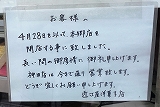 お客様へ
4月28日を以って、本郷店を
閉店する事に致しました。
長い間の御愛顧に御礼申し上げます。
神田店は今まで通り営業致します。
どうぞ宜しくお願い申し上げます。